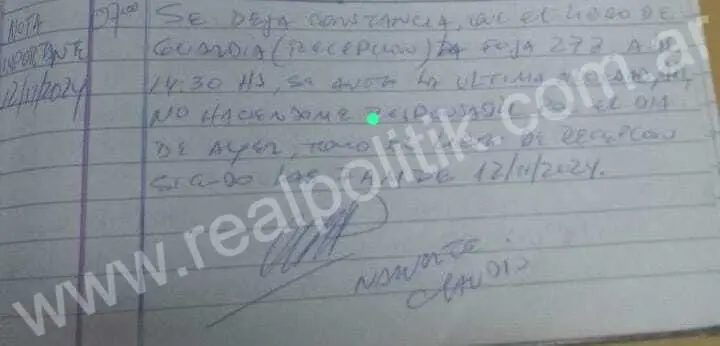 NOTA
IMPORTANTE
12/11/2024
07:00
SE DEJA CONSTANCIA, QUE EL LIBRO DE
GUARDIA (RECEPCION) LA FOJA 272 A
14:30 HS, SE ANOTA LA ULTIMA
NO HACIENDOME RESPONSABLE DEL DIA
DE AYER, TOMO EL LIBRO DE RECEPCION
SIENDO LAS DE 12/11/2024.
CLAUDIO
www.realpolitik.com.ar